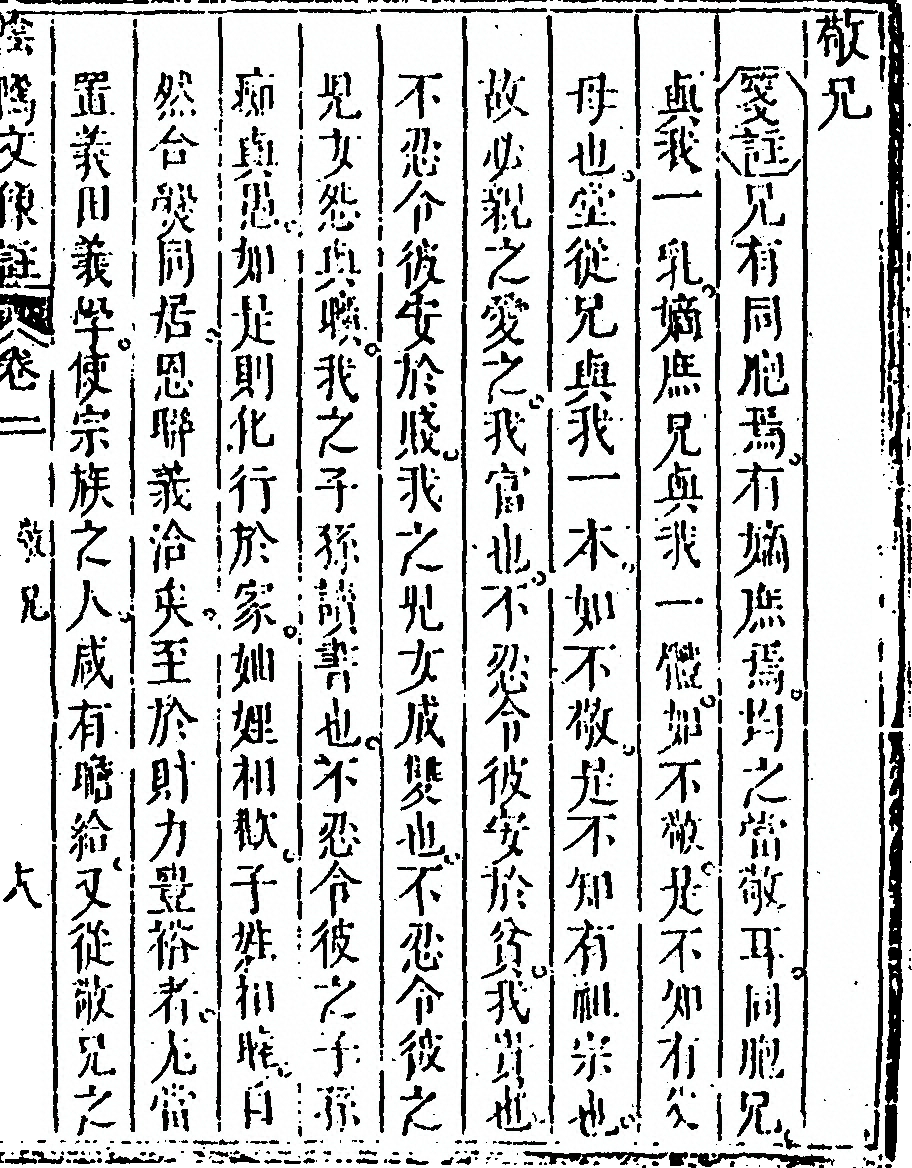 敬兄
箋註兄有同胞焉有嫡庶焉均之當敬耳同胞兄
與我一乳嫡庶兄與我一體如不敬是不知有父
母也堂從兄與我一本如不敬是不知有祖宗也
故必親之愛之我富也不忍令彼安於貧我貴也
不忍令彼安於賤我之兒女成雙也不忍令彼之
兒女怨與曠我之子孫讀書也不忍令彼之子孫
痴與愚如是則化行於家妯娌相歡子姓相睦自
然台爨同居恩聯義洽矣至於財力豐裕者尤當
置義田義學使宗族之人咸有瞻給又從敬兄之
陰隲文像註 卷一 敬兄 八